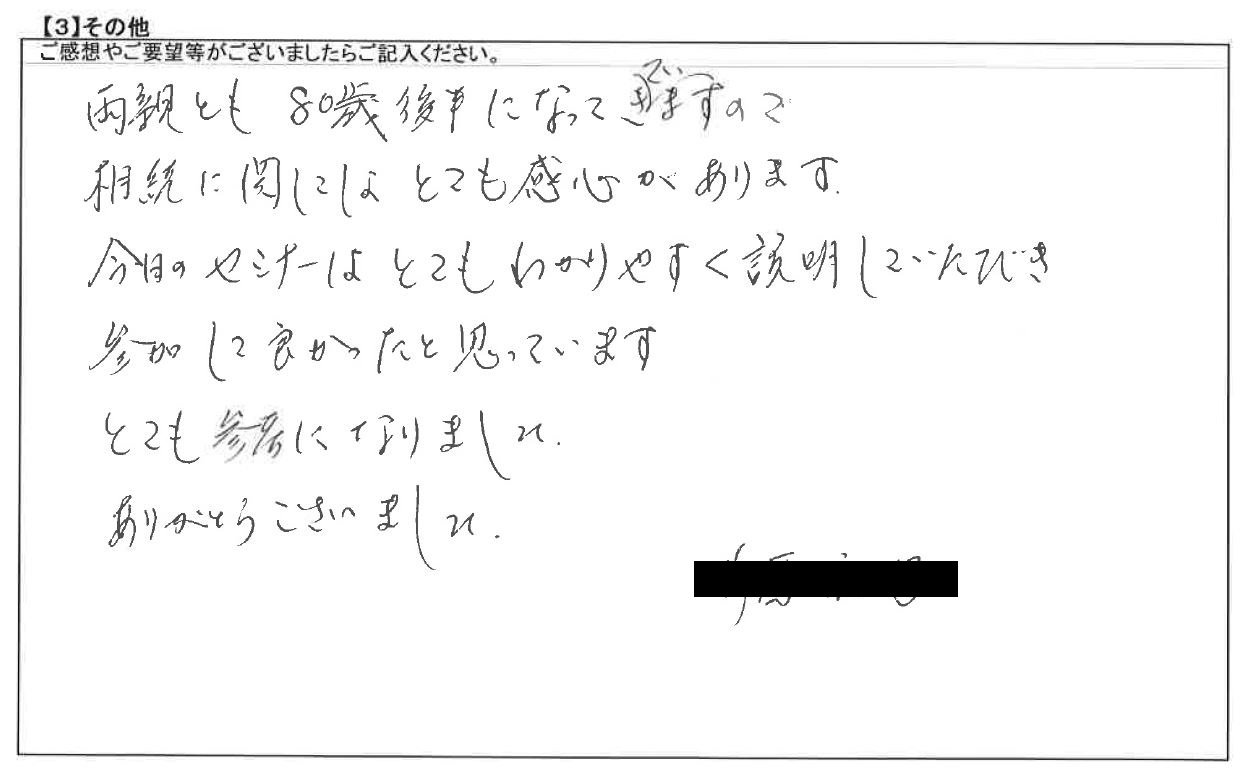 【3】その他
ご感想やご要望等がございましたらご記入ください。
両親とも 80歳後半になってきてますので
相続に関しては とても感心があります.
今日の セミナーは とても わかりやすく 説明していただき
参加して良かったと思っています
とても参考になりました.
ありがとうございました.